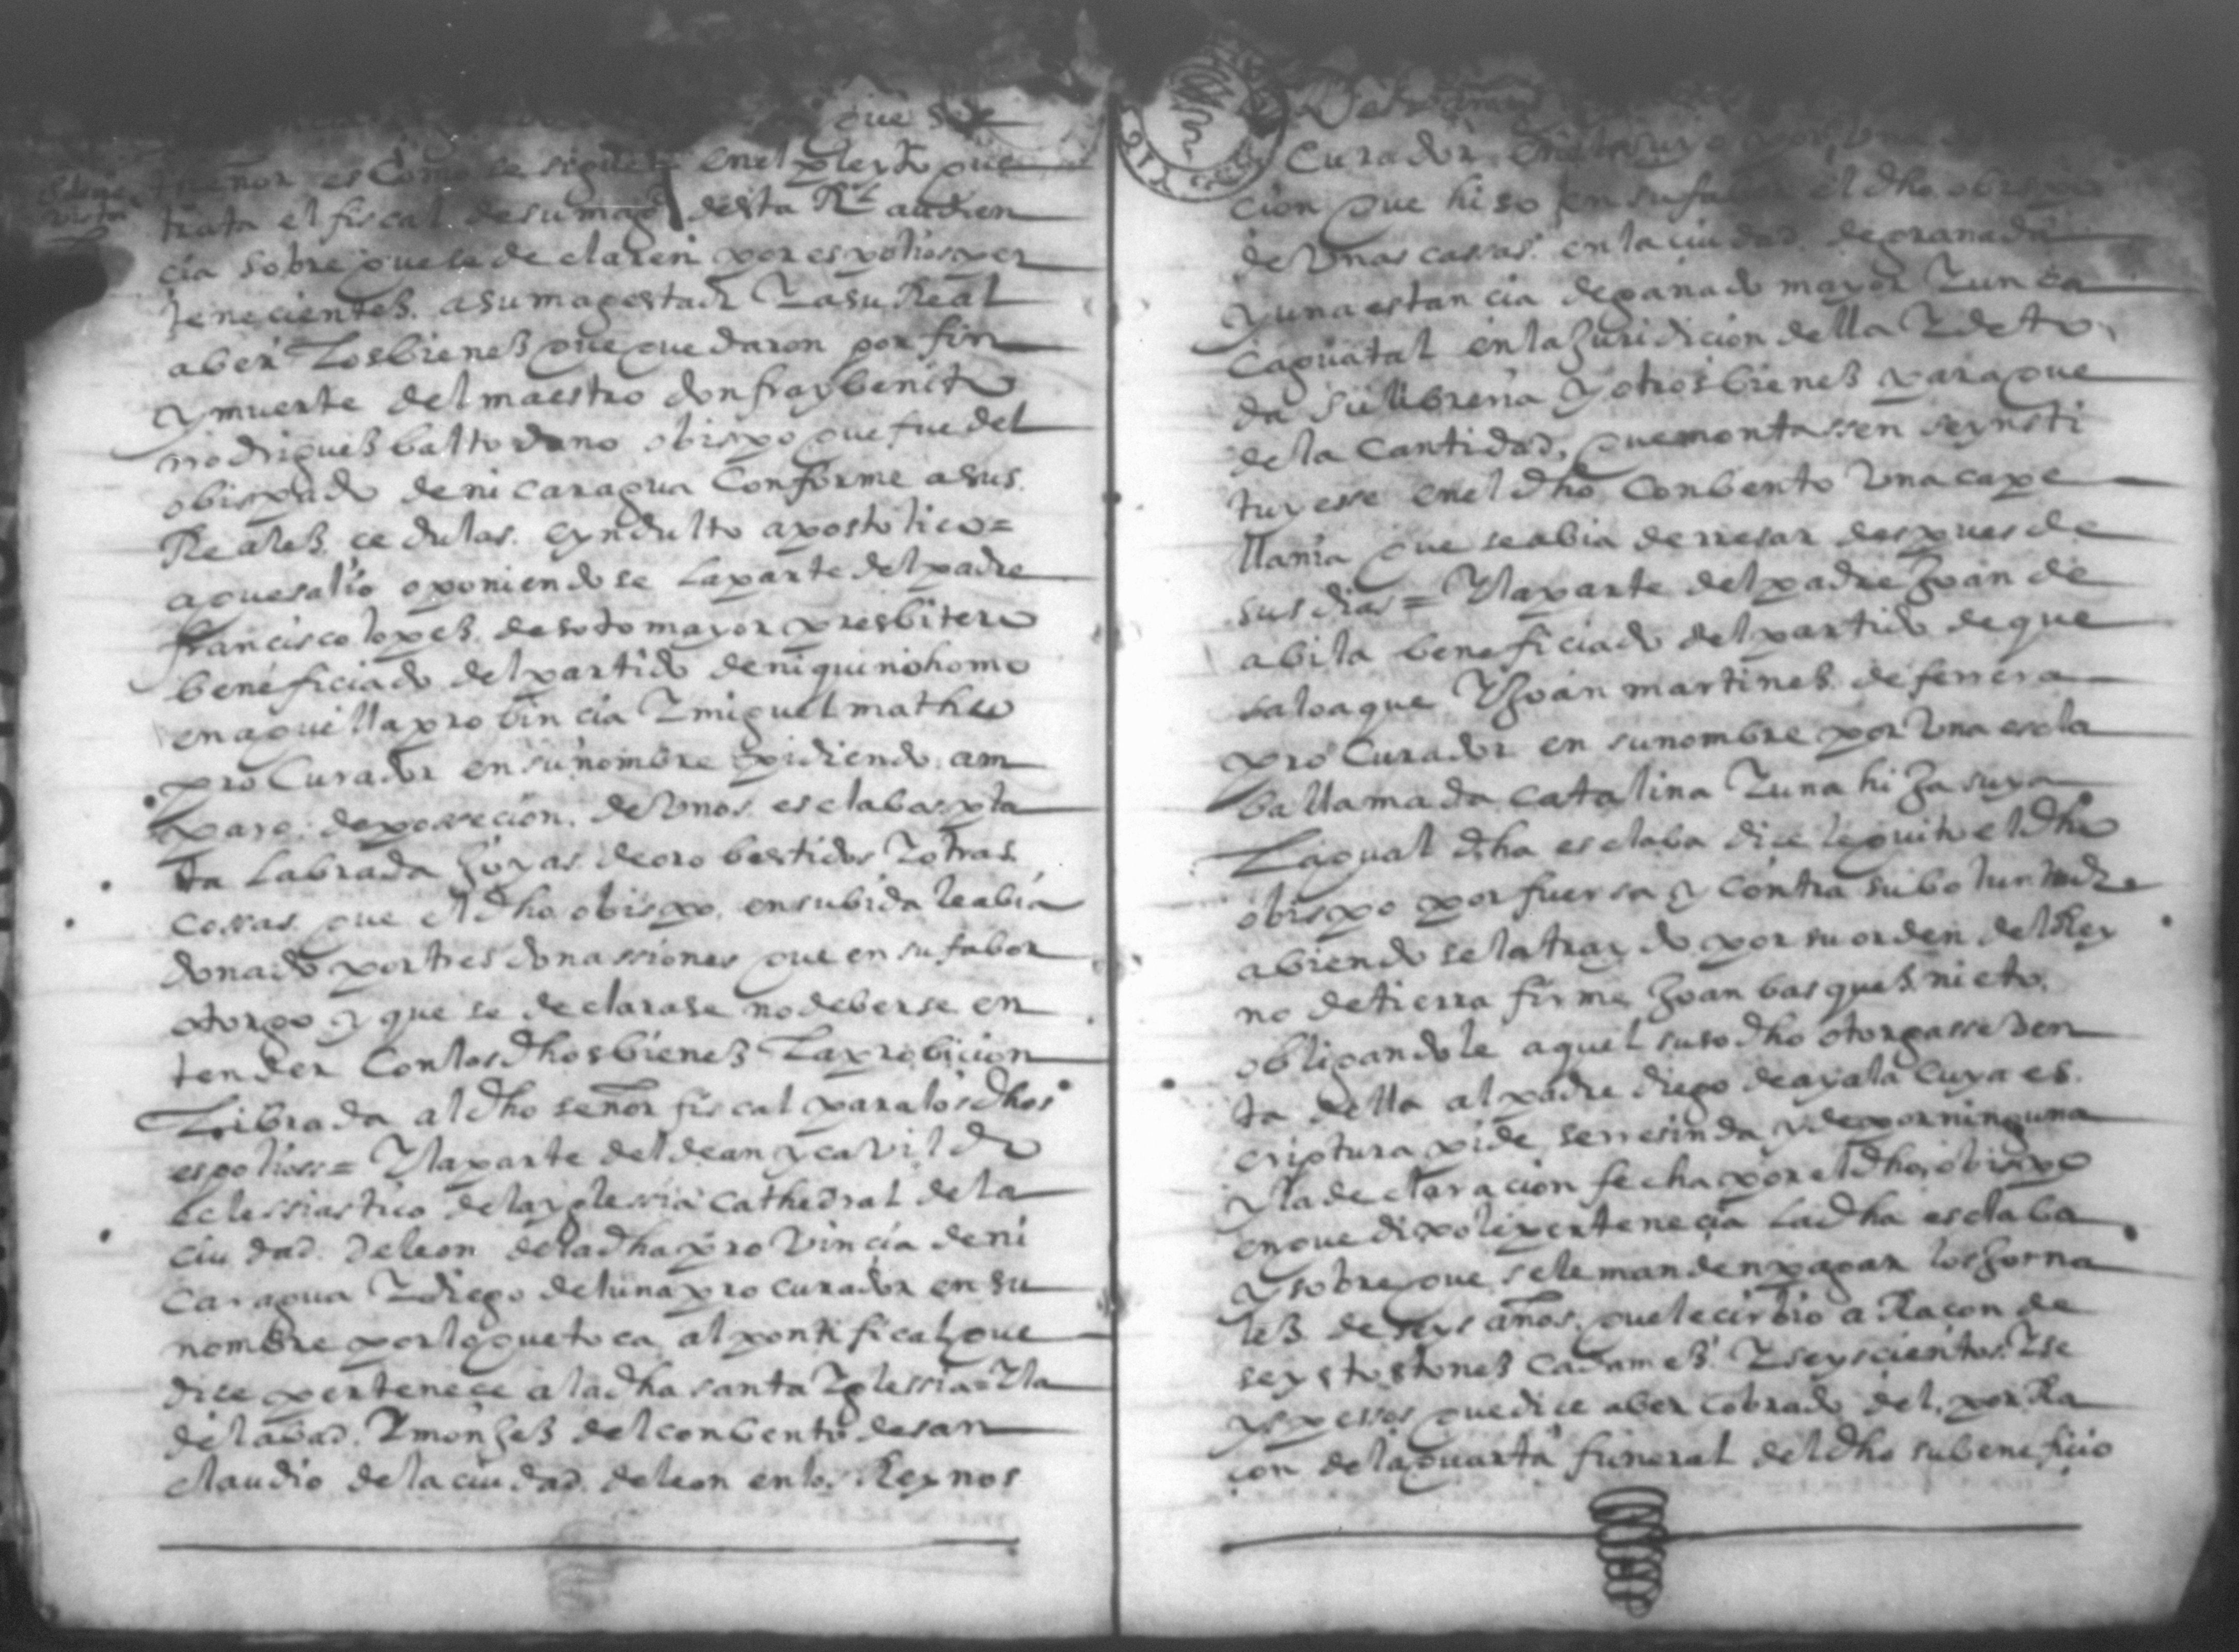 que su
thenor es como se sigue = en el pleyto que
trata el fiscal de su magd desta Rl audien
cia sobre que se declaren por espolios per
tenecientes a su magestad Y a su Real
aber Los bienes que quedaron por fin
y muerte del maestro don fray benito
rrodrigues baltodano obispo que fue del
obispado de nicaragua Conforme a sus
Reales cedulas e yndulto apostolico =
a que salio oponiendose La parte del padre
francisco lopes de sotomayor presbitero
beneficiado del partido de niquinohomo
en aquella probincia Y miguel matheo
proCurador en su nombre pidiendo am
paro de possecion de Unos esclabos pla
ta Labrada Joyas de oro bestidos Y otras
cossas que el dho obispo en su bida le abia
donado por tres donassiones que en su fabor
otorgo y que se declarase no deberse en
tender Con los dhos bienes La probicion
Librada al dho señor fiscal para los dhos
espolios = Y la parte del dean y cavildo
eclessiastico de la yglessia cathedral de la
ciudad de leon de la dha proVincia de ni
caragua Y diego de luna procurador en su
nombre por lo que toca al pontifical que
dice pertenece a la dha santa Yglessia = Y la
del abad Y monJes del conbento de san
claudio de la ciudad de leon en los Reynos
Curador
cion que hiso en su fabor el dho obispo
de Unas cassas en la ciudad de granada
y una estancia de ganado mayor Y un ca
caguatal en la Juridicion della Y de to
da su libreria Y otros bienes para que
de la Cantidad que montassen se ynsti
tuyesse en el dho Conbento Una cape
llania que se abia de rresar despues de
sus dias = Y la parte del padre Joan de
abila beneficiado del partido de que
saloaque Y Joan martines de ferrera
proCurador en su nombre por Una escla
ba llamada Catalina Y una hiJa suya
La qual dha esclaba dice le quito el dho
obispo por fuersa y contra su boluntad
abiendosela traydo por su orden del Rey
no de tierra firme Joan basques nieto
obligandole a quel susodho otorgasse Ven
ta della al padre diego de ayala Cuya es
criptura pide se rresinda y de por ninguna
Y la declaracion fecha por el dho obispo
en que dixo le pertenecia La dha esclaba
y sobre que se le manden pagar los Jorna
les de seys años que le cirbio a Racon de
seys tostones cada mes Y seyscientos Y se
ys pessos que dice aber cobrado del por Ra
con de la quarta funeral del dho su beneficio